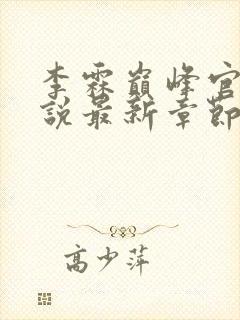 李霖巔峰官
說最新章節
高少萍